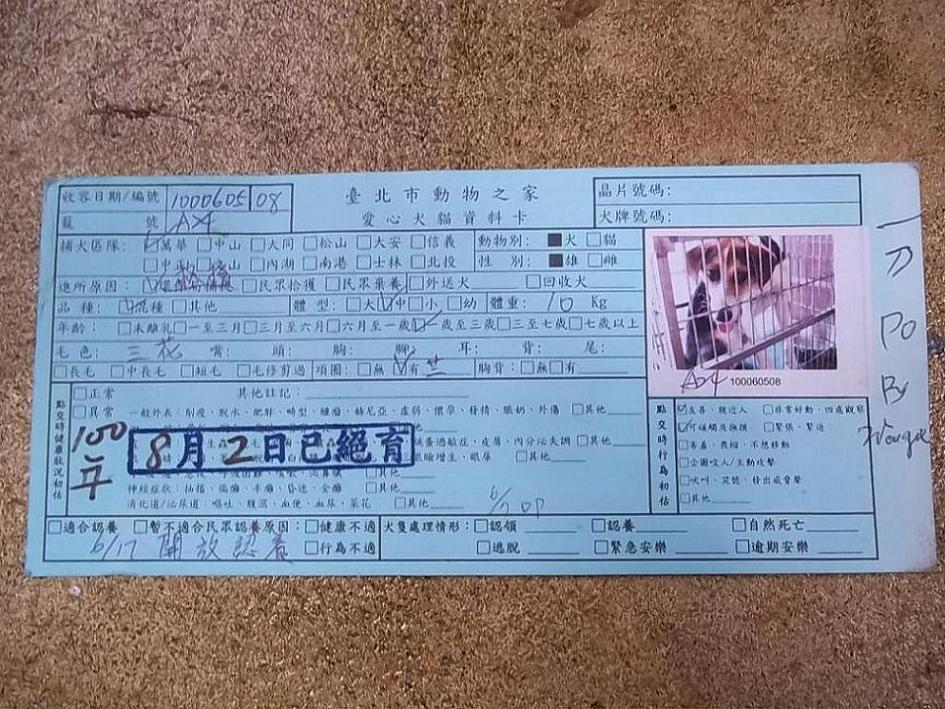 臺北市動物之家
愛心犬貓資料卡
收容日期/編號 1000605 08
籠 號 A24
晶片號碼:
犬牌號碼:
捕犬區隊: 萬華 □中山 □大同 □松山 □大安 □信義
□內湖 □南港 □士林 □北投
動物別: ■犬 □貓
性 別: ■雄 □雌
進所原因: □民眾拾獲 □民眾棄養 □外送犬 □回收犬
品種: 混種 □其他 體型: □大 中 □小 □幼 體重: 10 Kg
年齡: □未離乳 □一至三月 □三月至六月 □六月至一歲 一歲至三歲 □三至七歲 □七歲以上
毛色: 三花 嘴: 頭: 胸: 腳: 耳: 背: 尾:
□長毛 □中長毛 □短毛 □毛修剪過 項圈: □無 有 胸背: □無 □有
A24
100060508
點交時健康狀況初估
□正常 其他註記:
□異常 一般外表: 削瘦、脫水、肥胖、畸型、腫瘤、赫尼亞、虛弱、懷孕、發情、脹奶、外傷 □其他
過敏症、皮屑、內分泌失調 □其他
眼瞼增生、眼屎 □其他
□其他
神經症狀: 仙抬、偏癱、半癱、昏迷、全癱 □其他
消化道/泌尿道: 嘔吐、腹瀉、血便、血尿 □其他
100年
8月2日已絕育
點交時行為初估
友善、親近人 □非常好動、四處觀察
可碰觸及撫摸 □緊張、緊迫
□害羞、畏縮、不想移動
□企圖咬人/主動攻擊
□吠叫、哭號、發出威脅聲
□其他
□適合認養 □暫不適合民眾認養原因: □健康不適
□行為不適
6/17 開放認養
犬隻處理情形: □認領 □認養 □自然死亡
□逃脫 □緊急安樂 □逾期安樂
PO
By